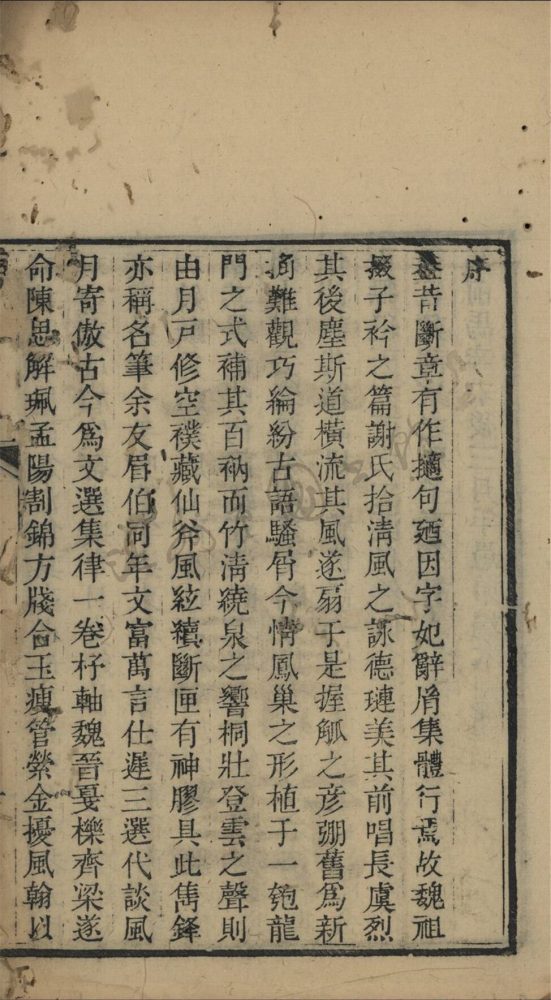 序
蓋昔斷章有作擿句廼因字妃辭脀集體行焉故魏祖
掇子衿之篇謝氏拾淸風之詠德璉美其前唱長虞烈
其後塵斯道橫流其風遂扇于是握觚之彥弸舊爲新
難觀巧綸紛古語騷屑今情鳳巢之形植于一匏龍
門之式補其百衲而竹淸繞泉之響桐壯登雲之聲則
由月戸修空襆藏仙斧風絃續斷匣有神膠具此雋鋒
亦稱名筆余友眉伯同年文富萬言仕遲三選代談風
月寄傲古今爲文選集律一卷杼軸魏晉戛櫟齊梁遂
命陳思解珮孟陽割錦方牋合玉瘦管縈金擾風翰以